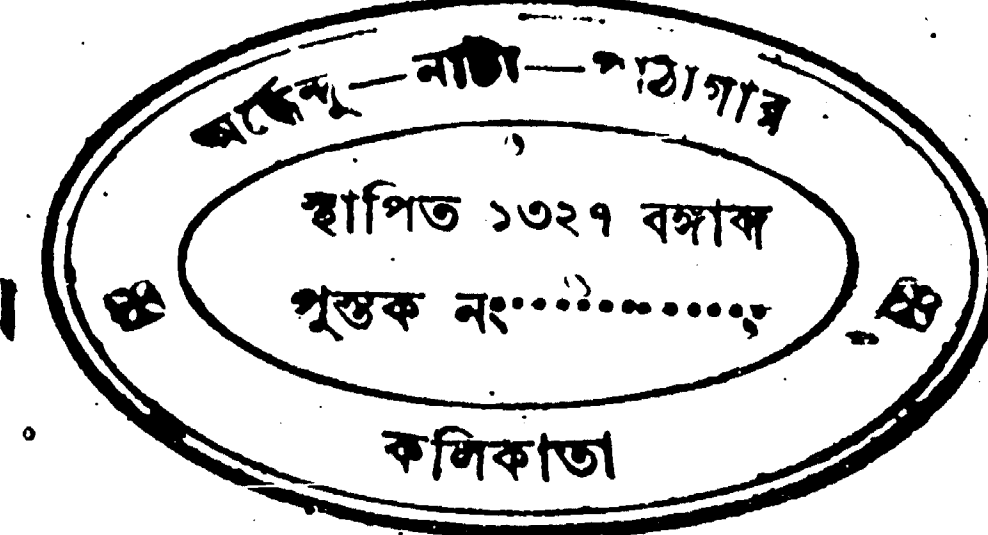 অর্দ্ধেন্দু—নাট্য—পাঠাগার
স্থাপিত ১৩২৭ বঙ্গাব্দ
পুস্তক নং..............
কলিকাতা